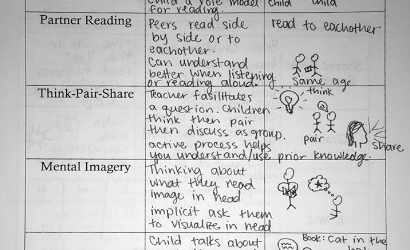 child a role model child child
for reading.
Partner Reading
Peers read side
by side or to
eachother.
Can understand
better when listening
or reading aloud.
read to eachother.
Same age
Think-Pair-Share
Teacher fasilitates
a question. Children
think then pair
then discuss as group.
active process helps
you understand/use prior knowledge.
think
pair
Share
Mental Imagery
Thinking about
what they read
image in head
implicit ask them
to visualize in head
Child talks about
Book: Cat in the